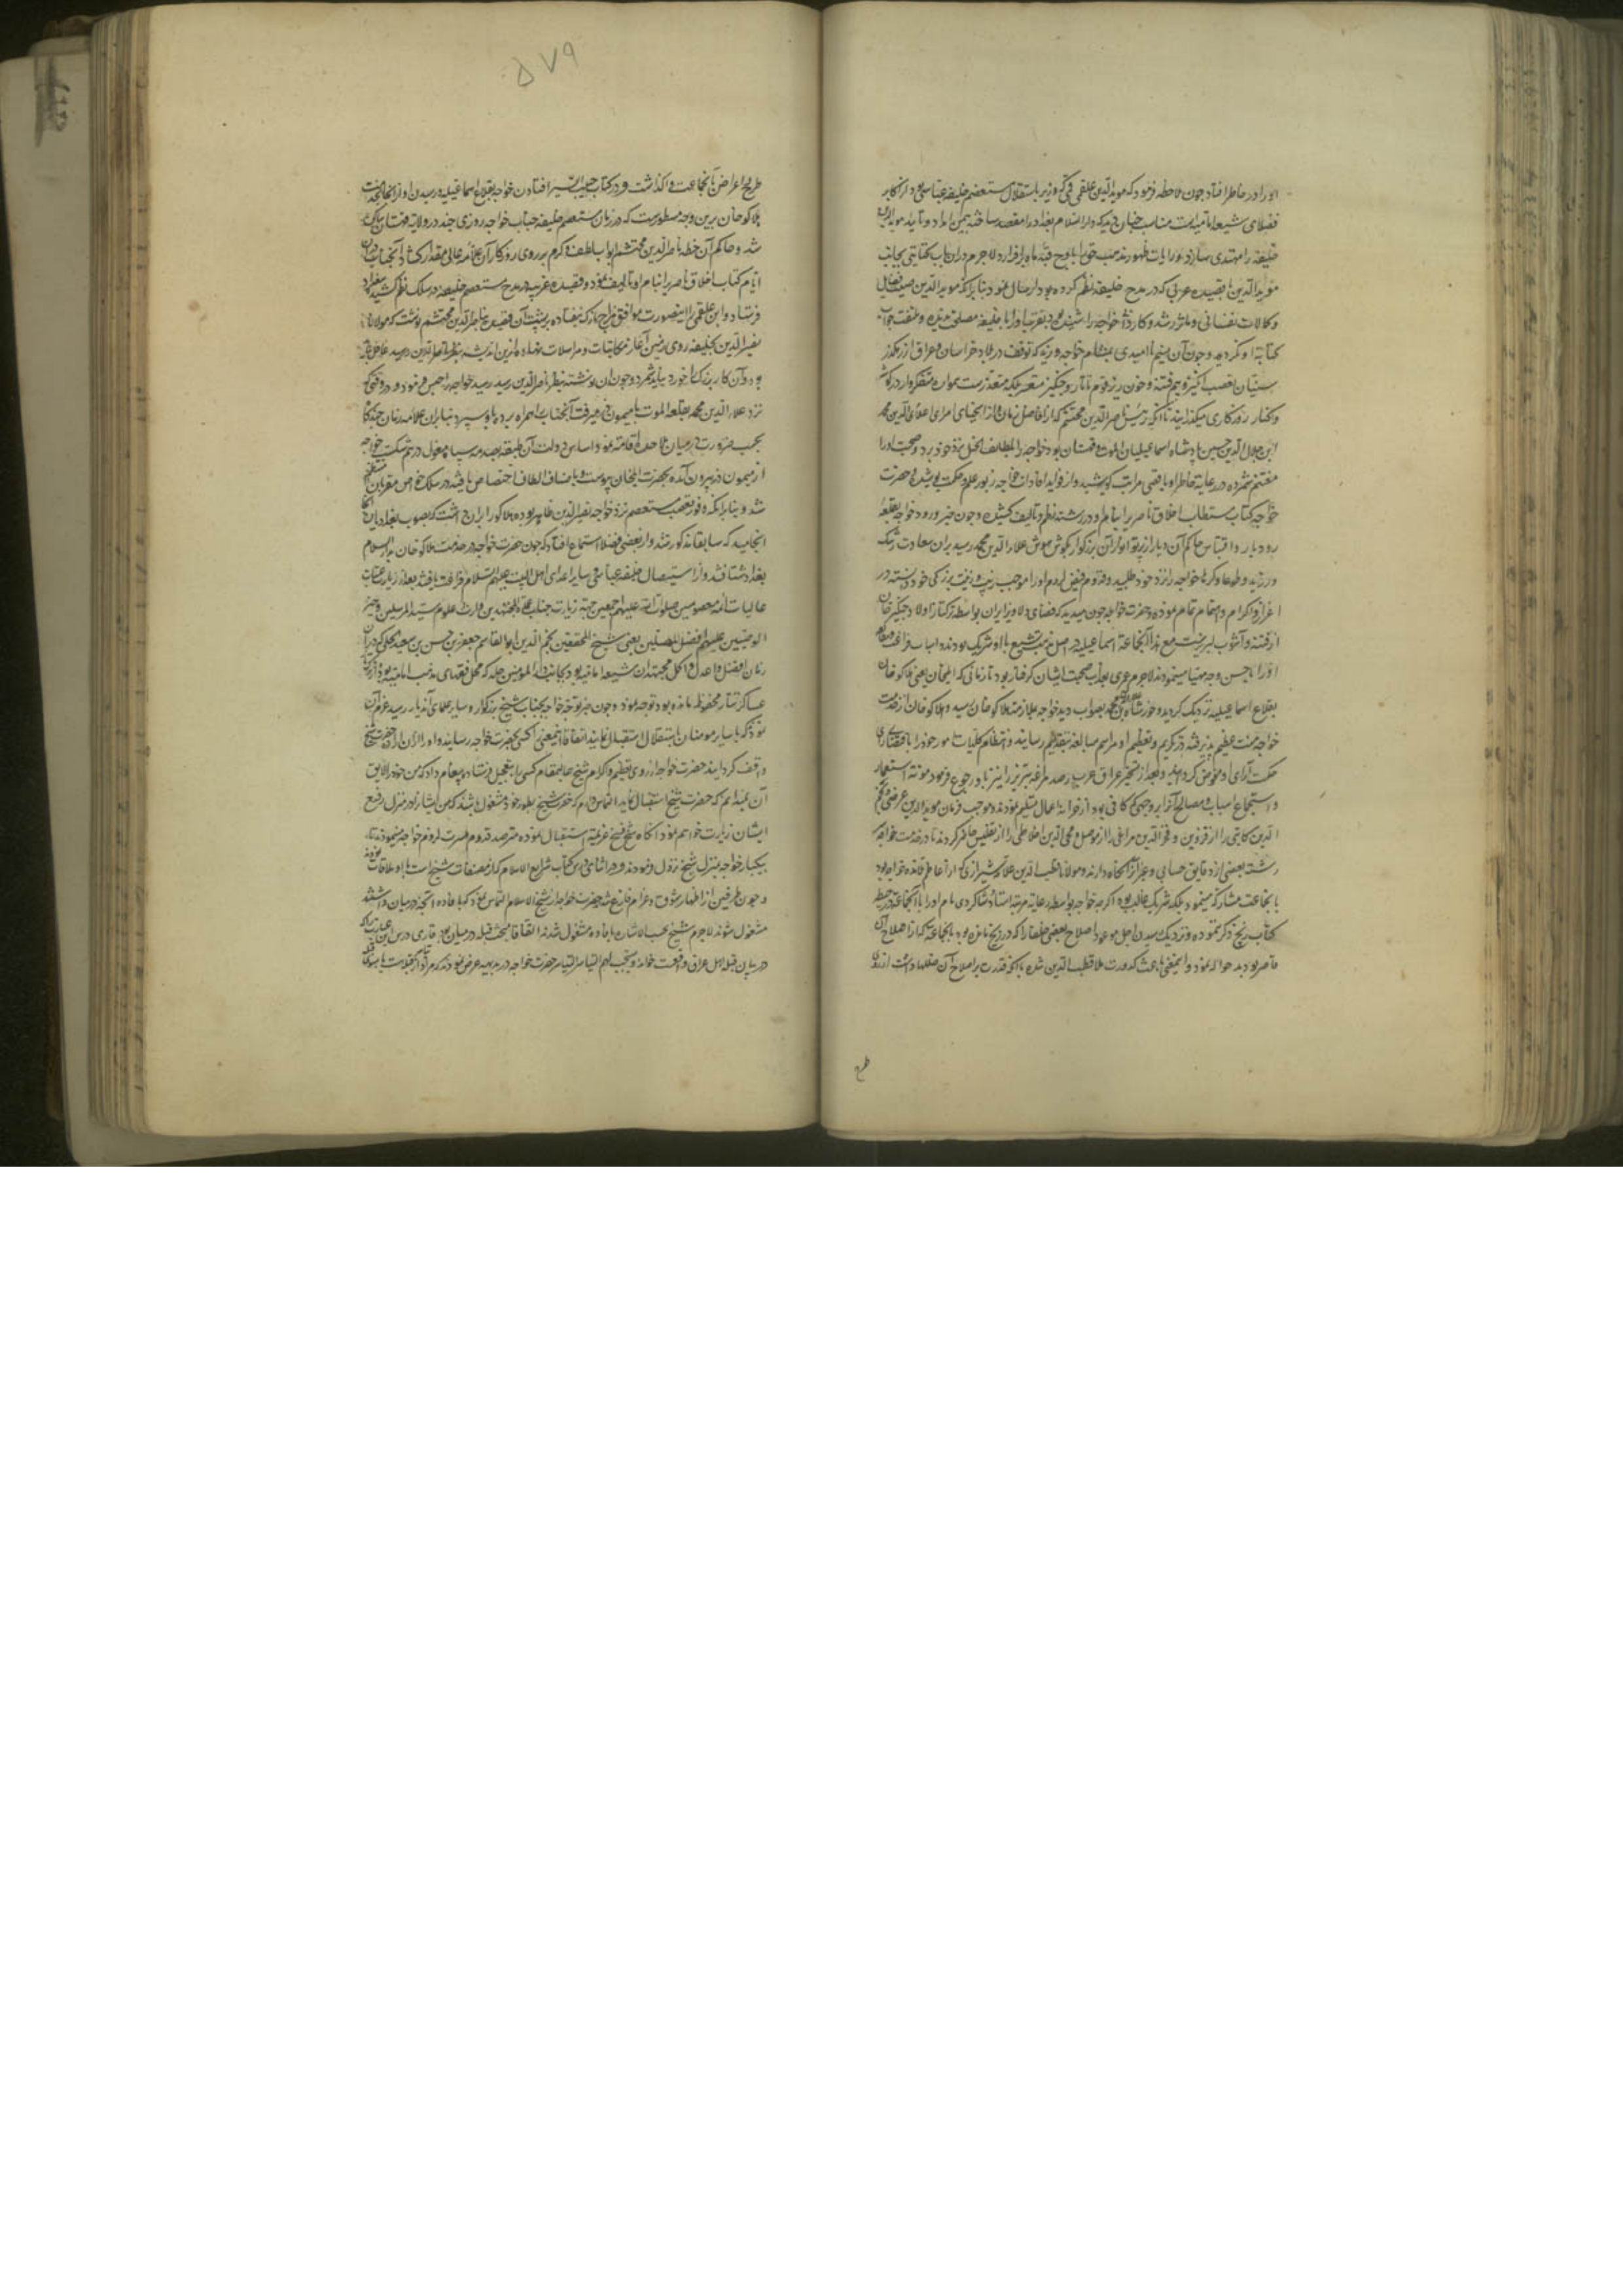 او را در خاطر افتاد چون ملاحظه فرمود که مویدالدین علقمی قمی که وزیر باستقلال مستعصم خلیفه عباسی بود از اکابر
فضلای شیعه امامیه است مناسب چنان دید که دارالسلام بغداد را مقصد ساخته بیمن امداد و تایید مویدالدین
خلیفه را مهتدی سازد و رایات ظهور مذهب حق باوج قبه ماه برافرازد لاجرم در ان باب کتابتی بجانب
مویدالدین با قصیده عربی که در مدح خلیفه نظم کرده بود ارسال نمود بنابرانکه مویدالدین صیت فضایل
و کمالات نفسانی و ماثر رشد و کاردانی خواجه را شنیده بود تقرب او را با خلیفه مصلحت ندیده ملتفت جواب
کتابت او نگردید و چون آن نسیم ناامیدی بمشام خواجه وزید که توقف در بلاد خراسان و عراق از رهکذر
سنیان تعصب انگیز و بیم فتنه و خون ریز قوم تاتار و چنگیز متعسر بلکه متعذرست بهوان متفکروار در گوشه
و کنار روزگاری میکذرانید تا انکه رئیس ناصرالدین محتشم که از افاضل زمان و از اسخیای امرای علاءالدین محمد
ابن جلال الدین حسن پادشاه اسماعیلیان الموت و قهستان بود خواجه را بلطایف الحیل نزد خود برد و صحبت او را
مغتنم شمرده در رعایت خاطر او باقصی مراتب کوشید و از فواید افادات خواجه زیور علم و حکمت پوشید و حضرت
خواجه کتاب مستطاب اخلاق ناصری را بنام او در رشته نظم و تالیف کشیده و چون خبر ورود خواجه بقلعه
رودبار و اقتباس حاکم آن دیار از پرتو انوار آن بزرکوار بکوش هوش علاءالدین محمد رسید بران سعادت رشک
ورزید و طوعا و کرها خواجه را نزد خود طلبید و قدوم فیض لزوم او را موجب زیب و زینت بزرکی خود دانسته در
اعزاز و اکرام و اهتمام تمام نموده و حضرت خواجه چون میدید که فضای دلاویز ایران بواسطه ترکتاز اولاد چنکیز خان
از فتنه و آشوب لبریزست مع هذا آنجماعه اسماعیلیه در اصل مذهب تشیع با او شریک بودند و اسباب فراغت و مطالعه
او را باحسن وجه مهیا مینمودند لاجرم بعذاب صحبت ایشان کرفتار بود تا زمانی که ایلخان یعنی هلاکو خان
بقلاع اسماعیلیه نزدیک کردید و خورشاه بن علاءالدین محمد بصواب دید خواجه بملازمت هلاکو خان رسید و هلاکو خان از خدمت
خواجه منت عظیم پذیرفته در تکریم و تعظیم او مراسم مبالغه بتقدیم رسانید و انتظام کلیات امور خود را باقتضای رای
حکمت آرای او مفوض گردانید و بعد از تسخیر عراق عرب رصد مراغه تبریز را نیز باو رجوع فرمود مونه استعمار
و استجماع اسباب و مصالح آنرا بر وجهی که کافی بود از خزانه و اعمال متسلیم نمودند و بموجب فرمان مویدالدین عرضی و نجم
الدین کاتبی را از قزوین و فخرالدین مراغی را از موصل و محی الدین اخلاطی را از تفلیس حاضر کردند تا در خدمت خواجه
رشته بعضی از دقایق حسابی و غیر انرا نکاه دارند و مولانا قطب الدین علامه شیرازی که از اعاظم تلامذه خواجه بود
با آنجماعت مشارکت مینمود بلکه شریک غالب بود اکرچه خواجه بواسطه رعایت مرتبه استاد شاکردی نام او را با آنجماعت در خطبه
کتاب زیج ذکر ننموده و نزدیک رسیدن اجل موعود اصلاح بعضی خللها را که در زیج مانده بود بجماعتی که از اصلاح آن
قاصر بودند حواله نمود و اینمعنی باعث کدورت ملا قطب الدین شده با انکه قدرت بر اصلاح آن خللها داشت از روی
طرح
۵۷۹
طرح اعراض بانجماعت واکذاشت و در کتاب حبیب السیر افتادن خواجه بقلاع اسماعیلیه و رسیدن او از انجا بخدمت
هلاکو خان برین وجه مسطورست که در زمان مستعصم خلیفه جناب خواجه روزی چند در ولایت قهستان ساکن
شد و حاکم آن خطه ناصرالدین محتشم ابواب لطف و کرم بر روی روزکار آن علامه عالی مقدار کشاد آنجناب دران
ایام کتاب اخلاق ناصری را بنام او تالیف نمود و قصیده غریب در مدح مستعصم خلیفه در سلک نظم کشید ببغداد
فرستاد و ابن علقمی را اینصورت موافق مزاج نازک نیفتاده بر پشت آن قصیده بناصرالدین محتشم نوشت که مولانا
نصیرالدین بخلیفه روی زمین آغاز مکاتبات و مراسلات نهاد و ازین اندیشه
بود آن کار بزرک را خورد نباید شمرد و چون ان نوشته بنظر ناصرالدین رسید خواجه را حبس فرمود و در وقتی که
نزد علاءالدین محمد بقلعه الموت یا میمون دز میرفت آنجناب را همراه برده باو سپرد بنابران علامه زمان چندکاه
بحسب ضرورت در میان ملاحده اقامت نمود و اساس دولت آن طبقه بصدمه سپاه مغول درهم شکست خواجه
از میمون دز بیرون آمده بحضرت ایلخان پیوست و باصناف الطاف اختصاص یافته در سلک خواص مقربان منتظم
شد و بنابرانکه وفور تعصب مستعصم نزد خواجه نصیرالدین ظاهر بود هلاکو را بران داشت که بصوب بغداد
انجامید که سابقا مذکور شد و از بعضی فضلا استماع افتاد که چون حضرت خواجه در خدمت هلاکو خان بدارالسلام
بغداد شتافتند و از استیصال خلیفه عباسی و سایر اعدای اهل البیت علیهم السلام فراغت یافتند بعد از زیارت عتبات
عالیات ائمه معصومین صلوات الله علیهم اجمعین جهت زیارت جناب عمدة المجتهدین وارث علوم سیدالمرسلین و خیر
الوصیین علیهم افضل المصلین یعنی شیخ المحققین نجم الدین ابوالقاسم جعفر بن حسن بن سعید حلی که دران
زمان افضل و اعدل و اکمل مجتهدان شیعه امامیه بود بجانب دارالمومنین حله که محل فقهای مذهب امامیه بود و از شر
عساکر تتار محفوظ مانده بود توجه نمود و چون خبر توجه خواجه بجناب شیخ بزرکوار و سایر علمای آندیار رسید عزم آن
نمودند که با سایر مومنان باستقلال استقبال نمایند اتفاقا اینمعنی را کسی بحضرت خواجه رسانید و او را از ان اراده حضرت شیخ
واقف کردانید حضرت خواجه از روی تعظیم و اکرام شیخ عالیمقام کسی را بتعجیل فرستاده پیغام داد که من خود را لایق
آن نمیدانم که حضرت شیخ استقبال نماید التماس دارم که حضرت شیخ بطور خود مشغول باشند که من ایشان را در منزل رفیع
ایشان زیارت خواهم نمود انکاه شیخ فسخ عزیمت استقبال نموده مترصد قدوم مسرت لزوم خواجه میبودند تا
بیکبار خواجه بمنزل شیخ نزول فرمودند و در اثنای درس کتاب شرایع الاسلام که از مصنفات شیخ است با او ملاقات نمودند
و چون طرفین از اظهار شوق و غرام فارغ شدند حضرت خواجه از شیخ الاسلام التماس نمود که بافاده آنچه در میان داشتند
مشغول شوند لاجرم شیخ بحسب الاشاره بافاده مشغول شدند اتفاقا بحث قبله در میان بود قاری درس این عبارت را که
در بیان قبله اهل عراق واقعست خواند و یستحب لهم التیاسر حضرت خواجه در بدیهه عرض نمودند که مراد از قبله است یا بسوی قبله